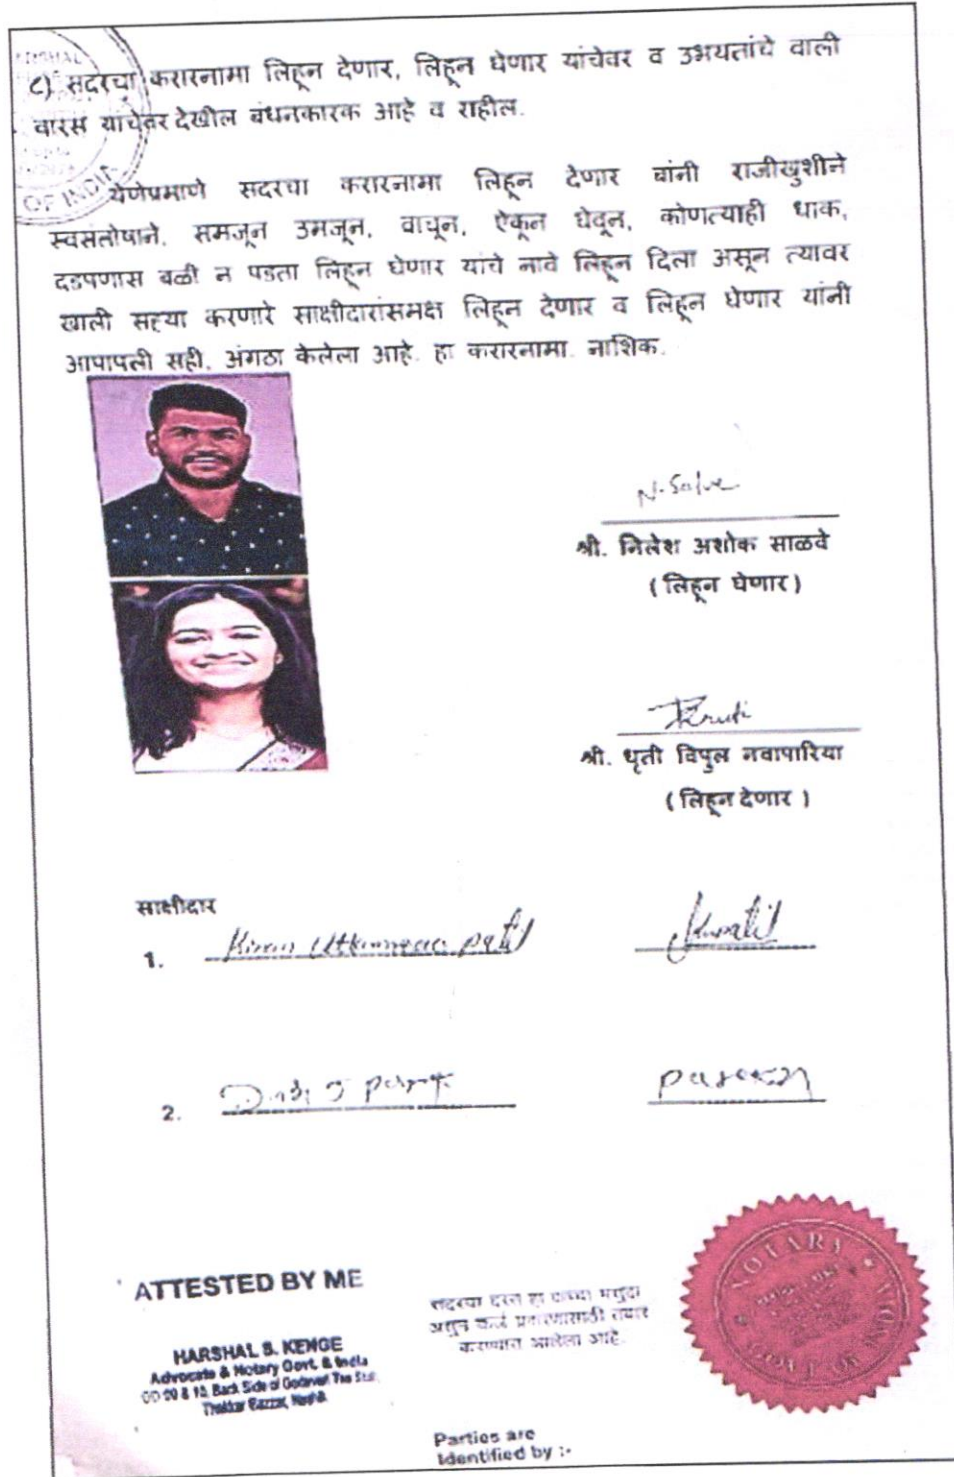 ८) सदरचा करारनामा लिहून देणार, लिहून घेणार यांचेवर व उभयतांचे वाली
वारस यांचेवर देखील बंधनकारक आहे व राहील.
येणेप्रमाणे सदरचा करारनामा लिहून देणार यांनी राजीखुशीने
स्वसंतोषाने, समजून उमजून, वाचून, ऐकून घेवून, कोणत्याही धाक,
दडपणास बळी न पडता लिहून घेणार यांचे नावे लिहून दिला असून त्यावर
खाली सह्या करणारे साक्षीदारांसमक्ष लिहून देणार व लिहून घेणार यांनी
आपापली सही, अंगठा केलेला आहे. हा करारनामा. नाशिक.
OF INDIA
N. Salve
श्री. निलेश अशोक साळवे
(लिहून घेणार)
श्री. धृती विपुल नवापारिया
(लिहून देणार)
साक्षीदार
1. Kiran Patil
2.
ATTESTED BY ME
HARSHAL S. KENGE
Advocate & Notary Govt. & India
Back Side of Godavari
Thakkar Bazzar, Nashik
सदरचा दस्त हा कच्चा मसुदा
असुन कर्ज प्रकरणासाठी तयार
करण्यात आलेला आहे.
NOTARY
Parties are
Identified by :-